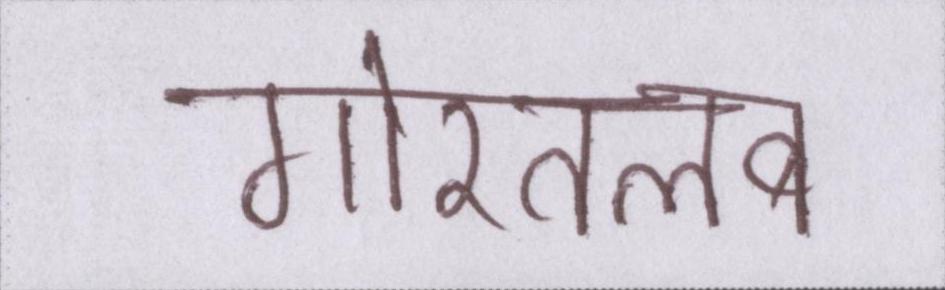 गोरतलब